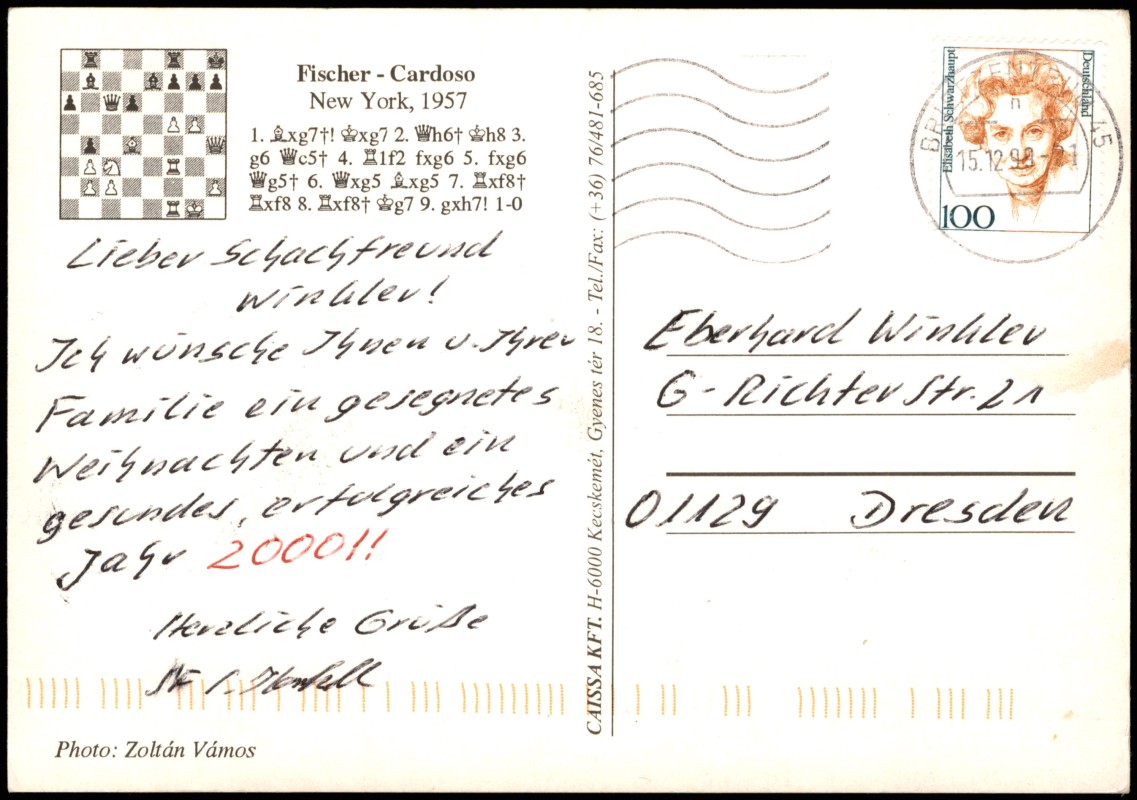 Fischer - Cardoso
New York, 1957
1. ♗xg7†! ♔xg7 2. ♕h6† ♔h8 3.
g6 ♕c5† 4. ♖1f2 fxg6 5. fxg6
♕g5† 6. ♕xg5 ♗xg5 7. ♖xf8†
♖xf8 8. ♖xf8† ♔g7 9. gxh7! 1-0
Lieber Schachfreund
Winkler!
Ich wünsche Ihnen u. Ihrer
Familie ein gesegnetes
Weihnachten und ein
gesundes, erfolgreiches
Jahr 2000!!
Herzliche Grüße
Photo: Zoltán Vámos
CAISSA KFT. H-6000 Kecskemét, Gyenes tér 18. - Tel./Fax: (+36) 76/481-685
Elisabeth Schwarzhaupt
Deutschland
100
45
n
15.12.9
Eberhard Winkler
G-Richter Str. 21
01129 Dresden